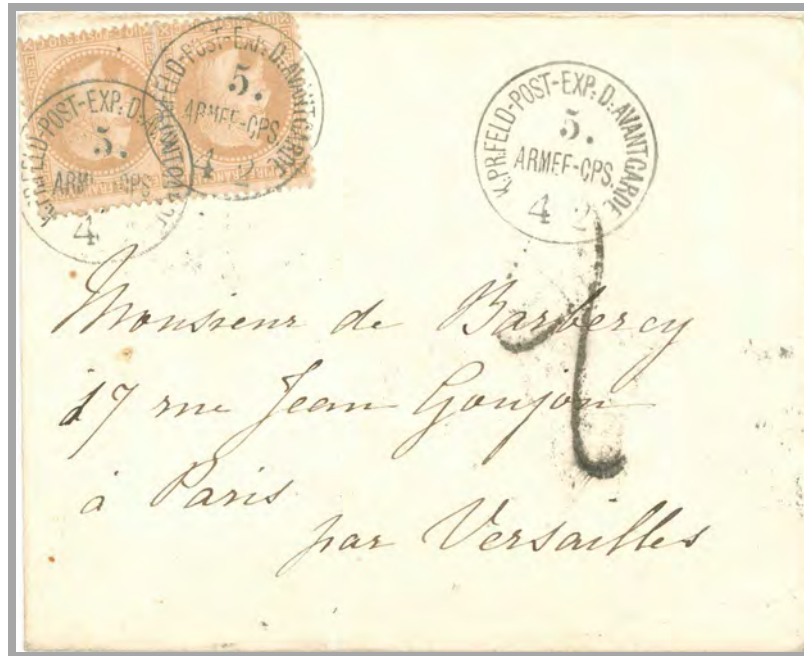 K.PR.FELD-POST-EXP. D. AVANTGARDE
5.
ARMEE-CPS.
4 2
K.PR.FELD-POST-EXP. D. AVANTGARDE
5.
ARMEE-CPS.
4
K.PR.FELD-POST-EXP. D. AVANTGARDE
5.
ARMEE-CPS.
4 2
Monsieur de Barbercy
17 rue Jean Goujon
à Paris
par Versailles